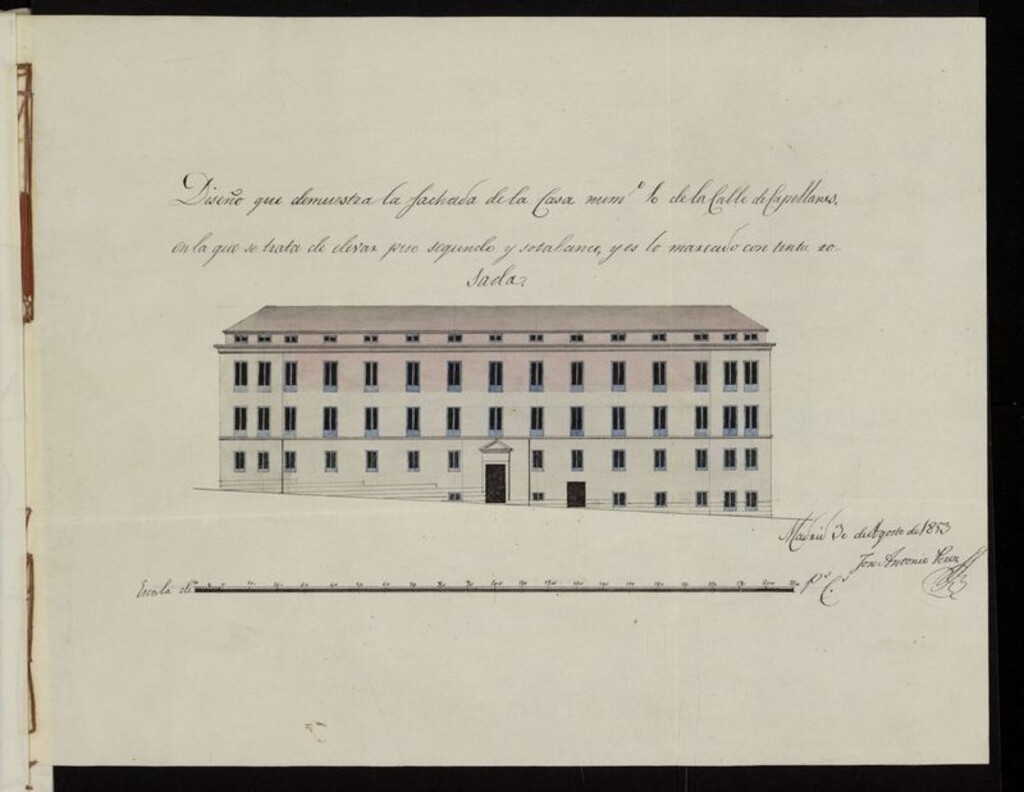 Diseño que demuestra la fachada de la Casa num.º de la Calle de Capellanes,
en la que se trata de elevar piso segundo y sotabanco, y es lo marcado con tinta ro-
sada.
Madrid 30 de Agosto de 1853
Jose Antonio Perez
Escala de P.s C.s